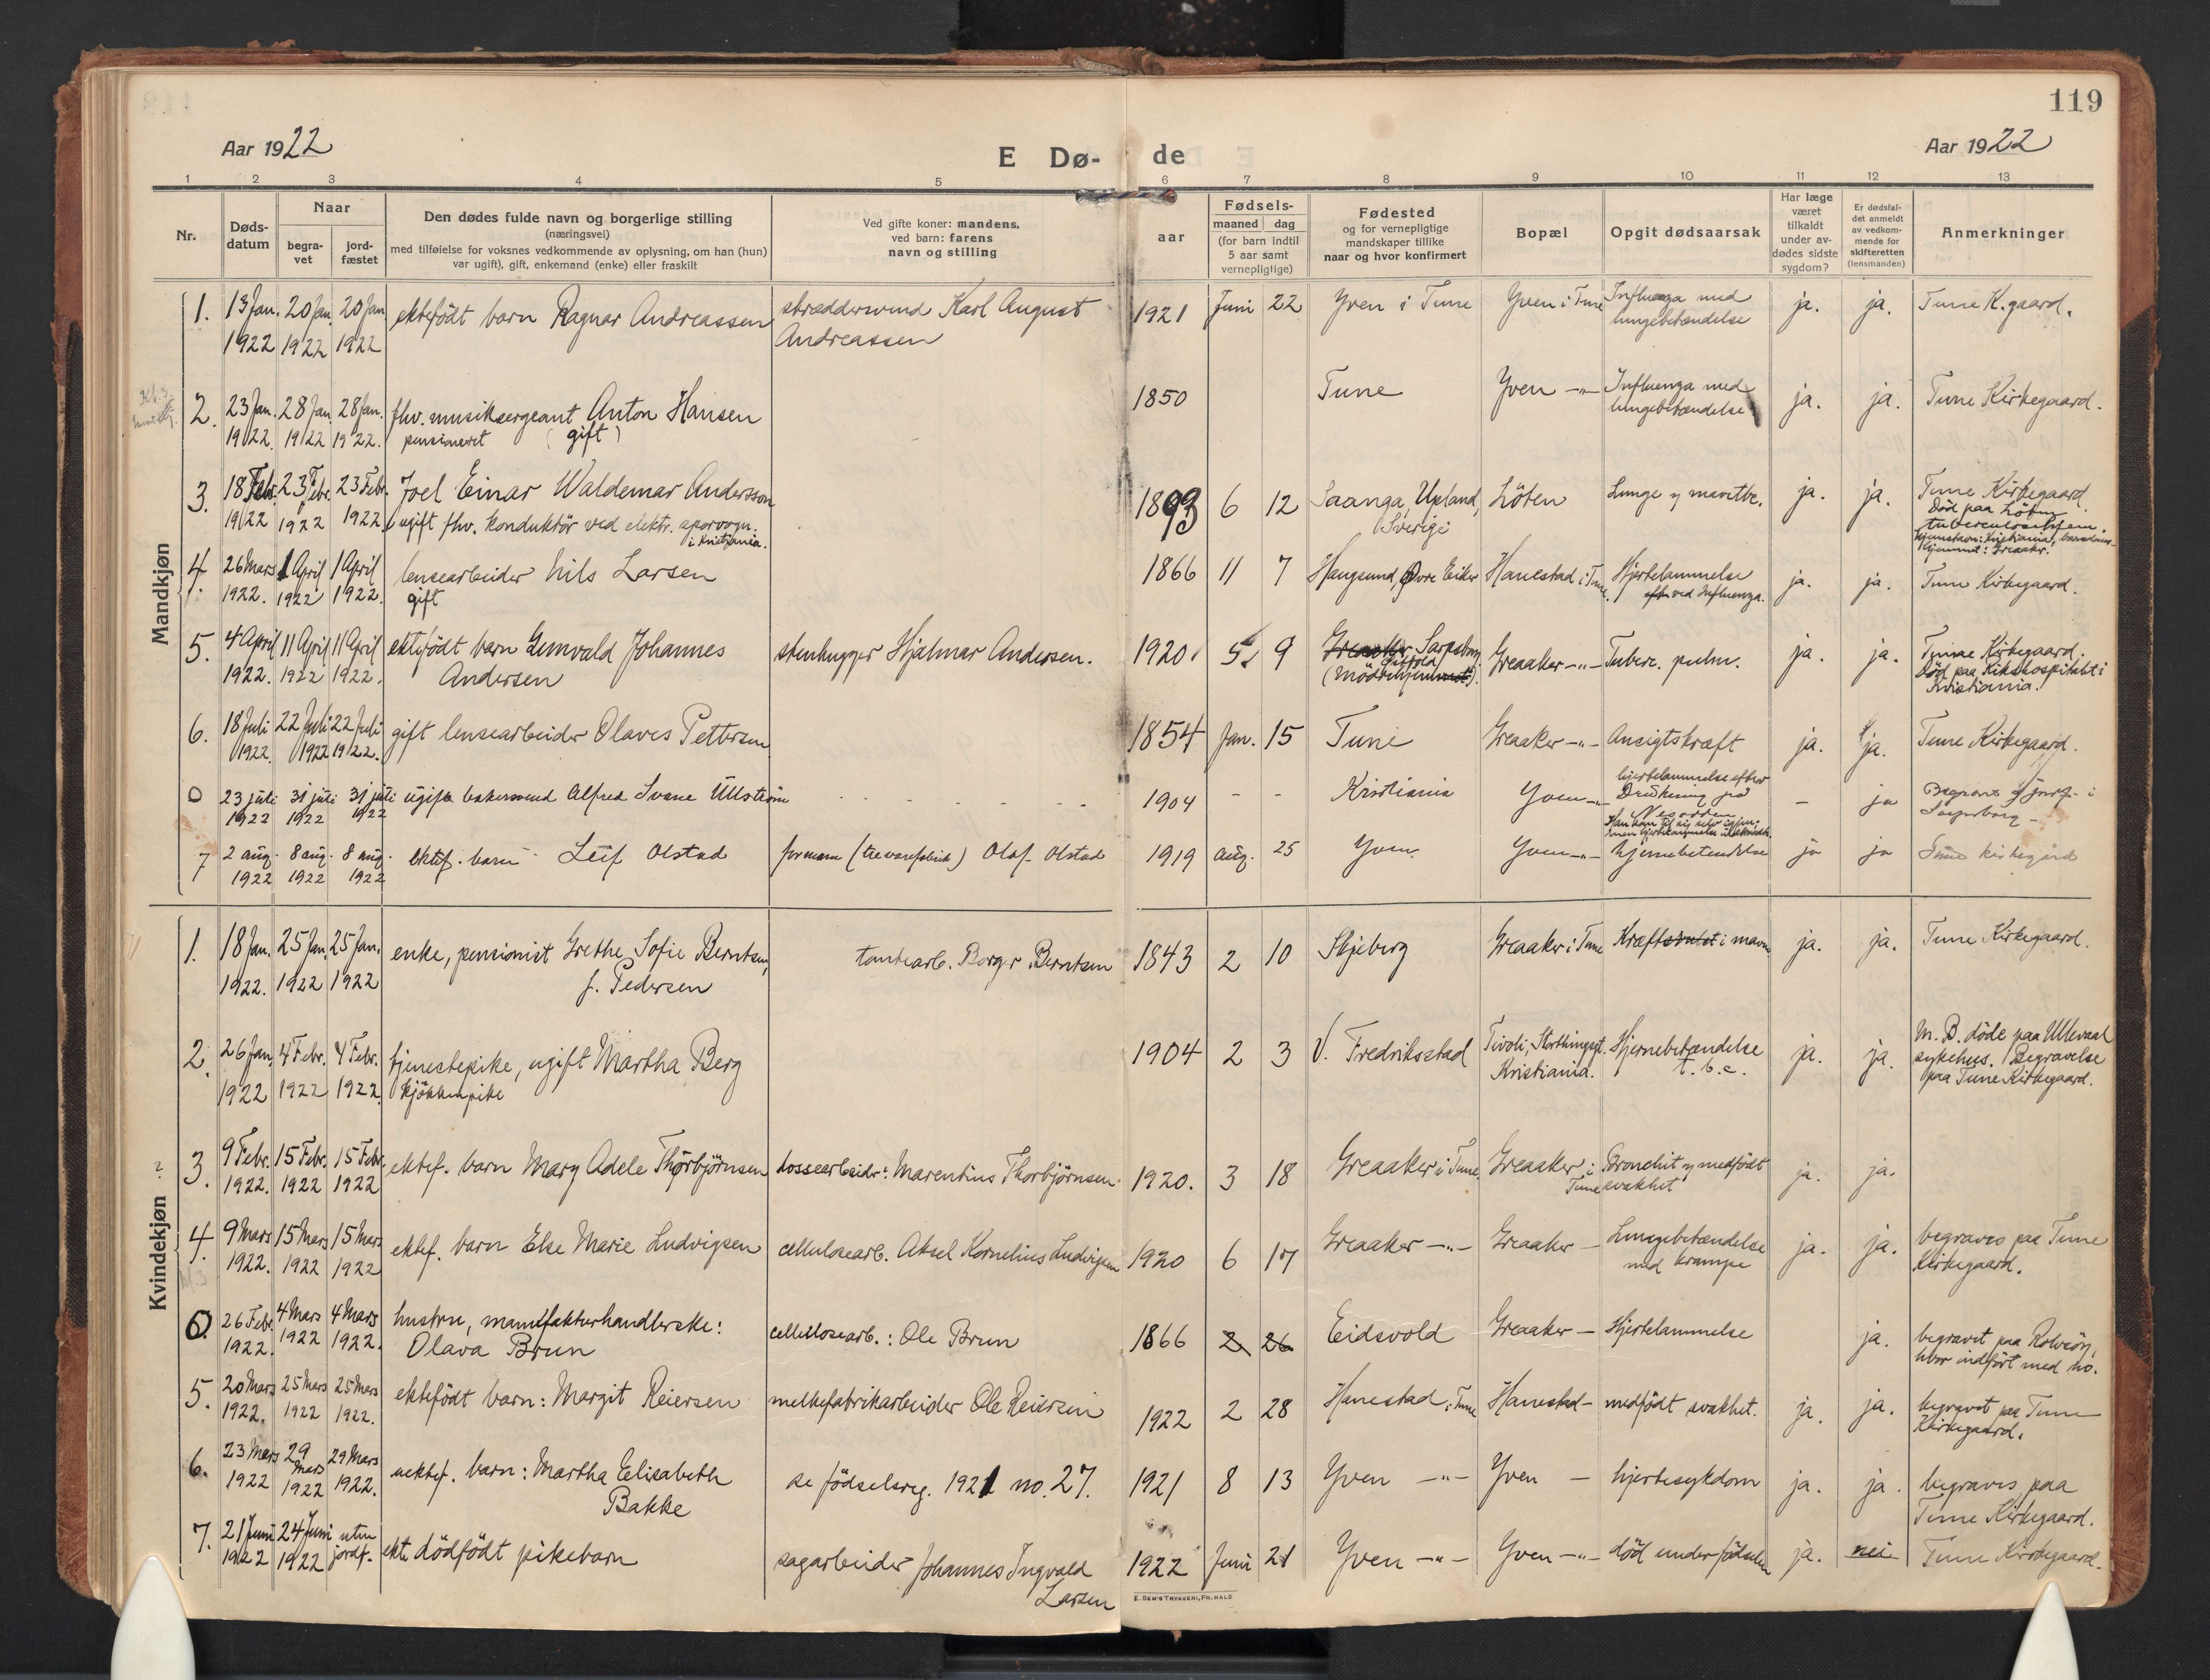 119
Aar 1922
E Dø-
de
Aar 1922
1 2 3 4 5 6 7 8 9 10 11 12 13
Nr.
Døds-
datum
Naar
begra-
vet
jord-
fæstet
Den dødes fulde navn og borgerlige stilling
(næringsvei)
med tilføielse for voksnes vedkommende av oplysning, om han (hun)
var ugift), gift, enkemand (enke) eller fraskilt
Ved gifte koner: mandens,
ved barn: farens
navn og stilling
Fødsels-
aar
maaned dag
(for barn indtil
5 aar samt
vernepligtige)
Fødested
og for vernepligtige
mandskaper tillike
naar og hvor konfirmert
Bopæl
Opgit dødsaarsak
Har læge
været
tilkaldt
under av-
dødes sidste
sygdom?
Er dødsfal-
det anmeldt
av vedkom-
mende for
skifteretten
(lensmanden)
Anmerkninger
Mandkjøn
1. 13 Jan. 20 Jan. 20 Jan ektefödt barn Ragnar Andreassen skræddersvend Karl August 1921 Juni 22 Yven i Tune Yven i Tune Influenza med ja. ja. Tune K.gaard.
1922 1922 1922 Andreassen lungebetændelse
2. 23 Jan. 28 Jan. 28 Jan. fhv. musiksergeant Anton Hansen 1850 Tune Yven -"- Influenza med ja. ja. Tune Kirkegaard.
1922. 1922 1922. pensioneret (gift) lungebetændelse
3. 18 Febr. 23 Febr. 23 Febr. Joel Einar Waldemar Andersson 1893 6 12 Saanga, Upland, Löten Lunge og mavetbc. ja. ja. Tune Kirkegaard.
1922 1922 1922. ugift fhv. konduktör ved elektr. sporvogn. Sverige Död paa Löten
i Kristiania. tuberculosehjem.
hjemstavn: Kristiania, barndoms-
hjemmet: Greaaker.
4. 26 Mars 1 April 1 April lensearbeider Nils Larsen 1866 11 7 Haugsund, Övre Eiker Hanestad i Tune. Hjertelammelse ja. ja. Tune Kirkegaard.
1922. 1922 1922. gift ved Influenza.
5. 4 April 11 April 11 April ektefödt barn Gunvald Johannes stenhugger Hjalmar Andersen. 1920. 5 9 Greaaker Sarpsborg Greaaker -"- Tuberc. pulm. ja. ja. Tune Kirkegaard.
1922. 1922 1922. Andersen Östfold Död paa Rikshospitalet i
(Mödrehjemmet). Kristiania.
6. 18 Juli 22 Juli 22 Juli gift lensearbeider Olaves Pettersen 1854 Jan. 15 Tune Greaaker -"- Ansigtskræft ja. ja. Tune Kirkegaard.
1922. 1922 1922.
0 23 juli 31 juli 31 juli ugift bakersvend Alfred Svane Ullström 1904 - - Kristiania Yven -"- hjertelammelse efter - ja Begravet og jordf. i
1922 1922 1922 Drukning paa Sarpsborg -
Nesodden
7 2 aug. 8 aug. 8 aug. ektef. barn Leif Olstad formann (trevarefabrik) Olaf Olstad 1919 aug. 25 Yven Yven -"- hjernebetendelse ja ja Tune kirkegård
1922 1922 1922
Kvindekjøn
1. 18 Jan. 25 Jan. 25 Jan. enke, pensionist Grethe Sofie Berntsen, tomtearb. Borger Berntsen 1843 2 10 Skjeberg Greaaker i Tune Kræftsvulst i maven ja. ja. Tune Kirkegaard.
1922. 1922 1922 f. Pedersen
2. 26 Jan 4 Febr. 4 Febr. tjenestepike, ugift Martha Berg 1904 2 3 V. Fredriksstad Tivoli, Storthingsgt. Hjernebetændelse ja. ja. M. B. döde paa Ullevaal
1922 1922 1922. kjökkenpike Kristiania. T.b.c. sykehus. Begravelse
paa Tune Kirkegaard.
3. 9 Febr. 15 Febr. 15 Febr. ektef. barn Mary Adele Thorbjörnsen lossearbeider: Marentius Thorbjörnsen. 1920. 3 18 Greaaker i Tune. Greaaker i Bronchit og medfödt ja. ja.
1922. 1922 1922 Tune svakhet
4. 9 Mars 15 Mars 15 Mars ektef. barn Else Marie Ludvigsen cellulosearb. Aksel Kornelius Ludvigsen 1920 6 17 Greaaker -"- Greaaker - Lungebetændelse ja. ja. begraves paa Tune
1922. 1922 1922 med krampe Kirkegaard.
0. 26 Febr. 4 Mars 4 Mars hustru, manufakturhandlerske: cellulosearb.: Ole Brun 1866 2 26 Eidsvold Greaaker - Hjertelammelse ja. begravet paa Rolvsöy,
1922. 1922 1922. Olava Brun hvor indfört med no.
5. 20 Mars 25 Mars 25 Mars ektefödt barn: Margit Reiersen melkefabrikarbeider Ole Reiersen 1922 2 28 Hanestad i Tune Hanestad - medfödt svakhet. ja. ja. begravet paa Tune
1922. 1922 1922. Kirkegaard.
6. 23 Mars 29 Mars 29 Mars uektef. barn: Martha Elisabeth se födselsreg. 1921 no. 27. 1921 8 13 Yven -"- Yven - hjertesykdom ja. ja. begraves paa
1922 1922 1922. Bakke Tune Kirkegaard.
7. 21 Juni 24 Juni uten ekte dödfödt pikebarn sagarbeider Johannes Ingvald 1922 Juni 21 Yven -"- Yven -"- död under födselen ja. nei Tune Kirkegaard.
1922 1922 jordf. Larsen
E. SEM'S TRYKKERI, FR.HALD